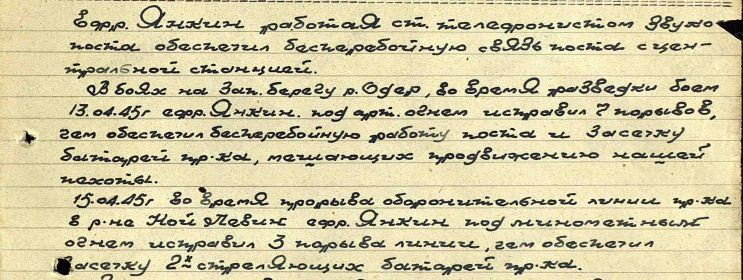 Ефр. Янкин работая ст. телефонистом звуко-
поста обеспечил бесперебойную связь поста с цен-
тральной станцией.
В боях на Зап. берегу р. Одер, во время разведки боем
13.04.45г ефр. Янкин. под арт. огнем исправил 7 порывов,
чем обеспечил бесперебойную работу поста и засечку
батарей пр-ка, мешающих продвижению нашей
пехоты.
15.04.45г во время прорыва оборонительной линии пр-ка
в р-не Ной Левин ефр. Янкин под минометным
огнем исправил 3 порыва линии, чем обеспечил
засечку 2х стреляющих батарей пр-ка.